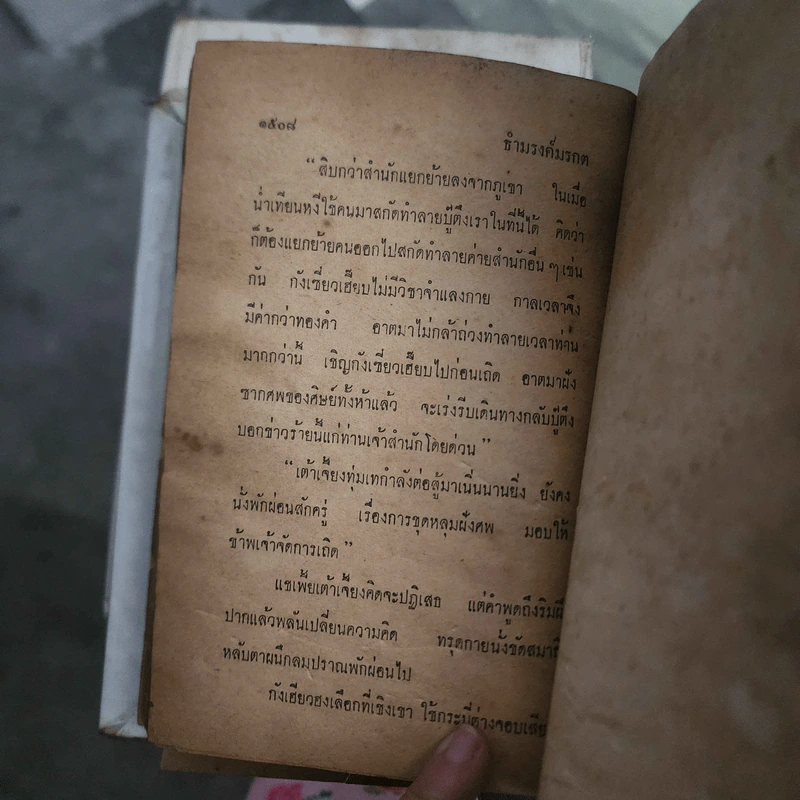 ๑๕๐๘
ธำมรงค์มรกต
“สิบกว่าสำนักแยกย้ายลงจากภูเขา ในเมื่อ
น่ำเทียนหงีใช้คนมาสกัดทำลายบู๊ตึ๊งเราในที่นี้ได้ คิดว่า
ก็ต้องแยกย้ายคนออกไปสกัดทำลายค่ายสำนักอื่น ๆ เช่น
กัน กังเซี่ยวเฮี๊ยบไม่มีวิชาจำแลงกาย กาลเวลาจึง
มีค่ากว่าทองคำ อาตมาไม่กล้าถ่วงทำลายเวลาท่าน
มากกว่านี้ เชิญกังเซี่ยวเฮี๊ยบไปก่อนเถิด อาตมาฝัง
ซากศพของศิษย์ทั้งห้าแล้ว จะเร่งรีบเดินทางกลับบู๊ตึ๊ง
บอกข่าวร้ายนี้แก่ท่านเจ้าสำนักโดยด่วน”
“เต้าเจี้ยงทุ่มเทกำลังต่อสู้มาเนิ่นนานยิ่ง ยังคง
นั่งพักผ่อนสักครู่ เรื่องการขุดหลุมฝังศพ มอบให้
ข้าพเจ้าจัดการเถิด”
แชเพ้ยเต้าเจี้ยงคิดจะปฏิเสธ แต่คำพูดถึงริม
ปากแล้วพลันเปลี่ยนความคิด ทรุดกายนั่งขัด
หลับตาผนึกลมปราณพักผ่อนไป
กังเฮียวฮงเลือกที่เชิงเขา ใช้กระบี่ต่างจอบ